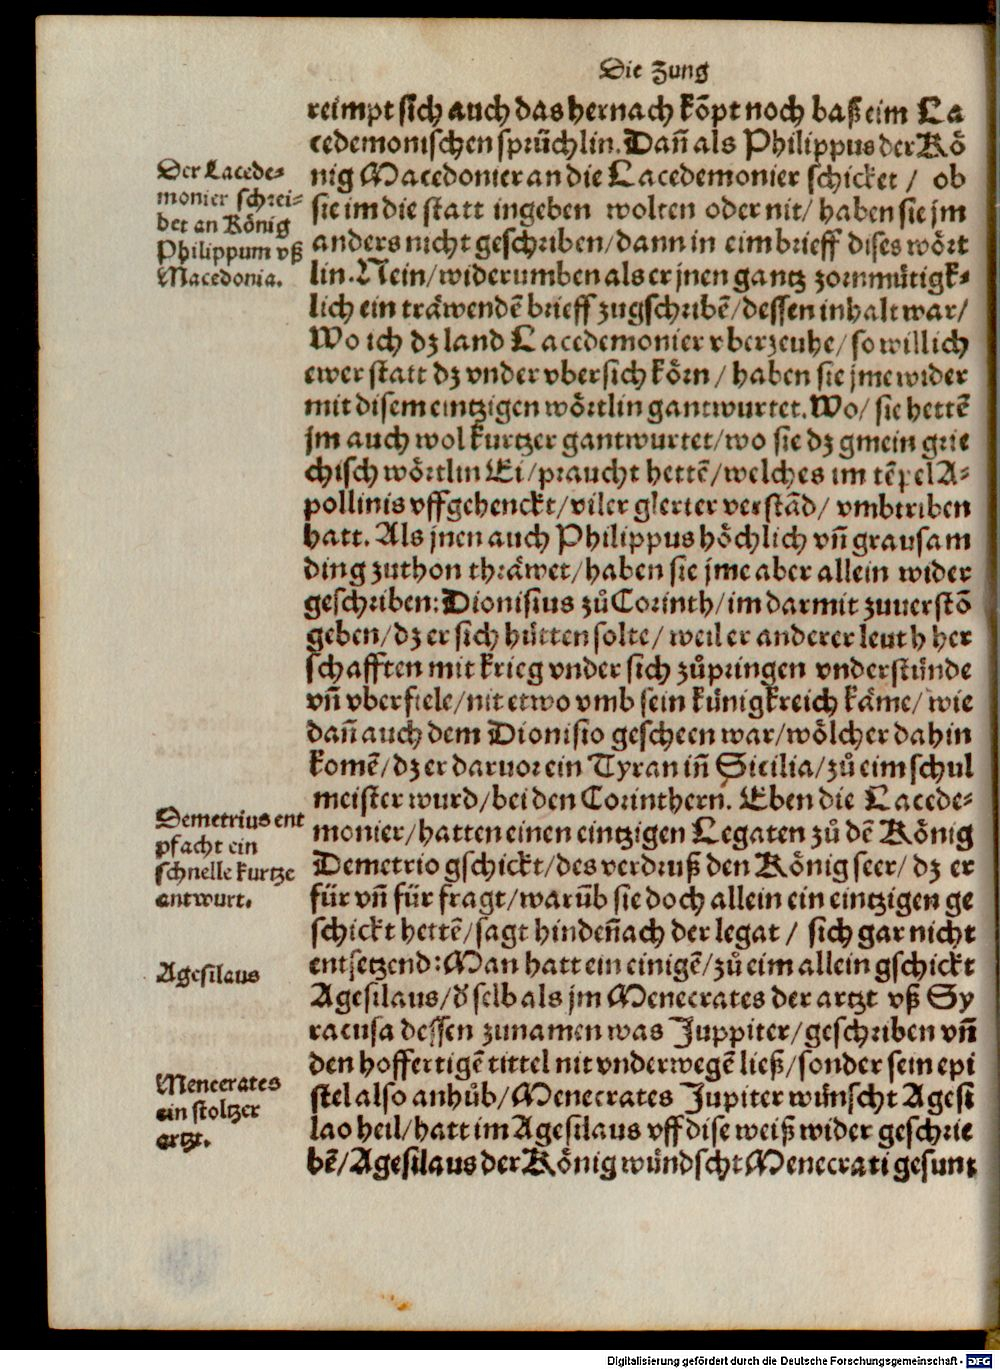 Die Zung
reimpt sich auch das hernach kõpt noch baß eim La
cedemonischen sprüchlin. Dañ als Philippus der Kö
nig Macedonier an die Lacedemonier schicket / ob
sie im die statt ingeben wolten oder nit/ haben sie jm
anders nicht geschriben/dann in eim brieff dises wört
lin. Nein/widerumben als er jnen gantz zornmütigk⸗
lich ein träwendẽ brieff zugschribẽ/dessen inhalt war/
Wo ich dz land Lacedemonier vberzeuhe/so will ich
ewer statt dz vnder vbersich körn/ haben sie jme wider
mit disem eintzigen wörtlin gantwurtet. Wo/ sie hettẽ
jm auch wol kurtzer gantwurtet/wo sie dz gmein grie
chisch wörtlin Ei/praucht hettẽ/welches im tẽpel A⸗
pollinis vffgehenckt/viler glerter verstãd/ vmbtriben
hatt. Als jnen auch Philippus höchlich vñ grausam
ding zuthon thräwet/haben sie jme aber allein wider
geschriben: Dionisius zů Corinth/im darmit zuuerstõ
geben/dz er sich hütten solte/ weil er anderer leuth her
schafften mit krieg vnder sich zůpringen vnderstünde
vñ vberfiele/nit etwo vmb sein künigkreich käme/ wie
dañ auch dem Dionisio gescheen war/wölcher dahin
komẽ/dz er daruor ein Tyran iñ Sicilia/zů eim schul
meister wurd/bei den Corinthern. Eben die Lacede⸗
monier/hatten einen eintzigen Legaten zů dẽ König
Demetrio gschickt/des verdruß den König seer/ dz er
für vñ für fragt/warũb sie doch allein ein eintzigen ge
schickt hettẽ/sagt hindeñach der legat / sich gar nicht
entsetzend: Man hatt ein einigẽ/zů eim allein gschickt
Agesilaus/d̃ selb als jm Menecrates der artzt vß Sy
racusa dessen zunamen was Juppiter/geschriben vñ
den hoffertigẽ tittel nit vnderwegẽ ließ/sonder sein epi
stel also anhůb/Menecrates Jupiter wünscht Agesi
lao heil/hatt im Agesilaus vff dise weiß wider geschrie
bẽ/Agesilaus der König wündscht Menecrati gesunt
Der Lacede⸗
monier schrei⸗
bet an König
Philippum vß
Macedonia.
Demetrius ent
pfacht ein
schnelle kurtze
antwurt.
Agesilaus
Menecrates
ein stoltzer
artzt.
Digitalisierung gefördert durch die Deutsche Forschungsgemeinschaft - DFG